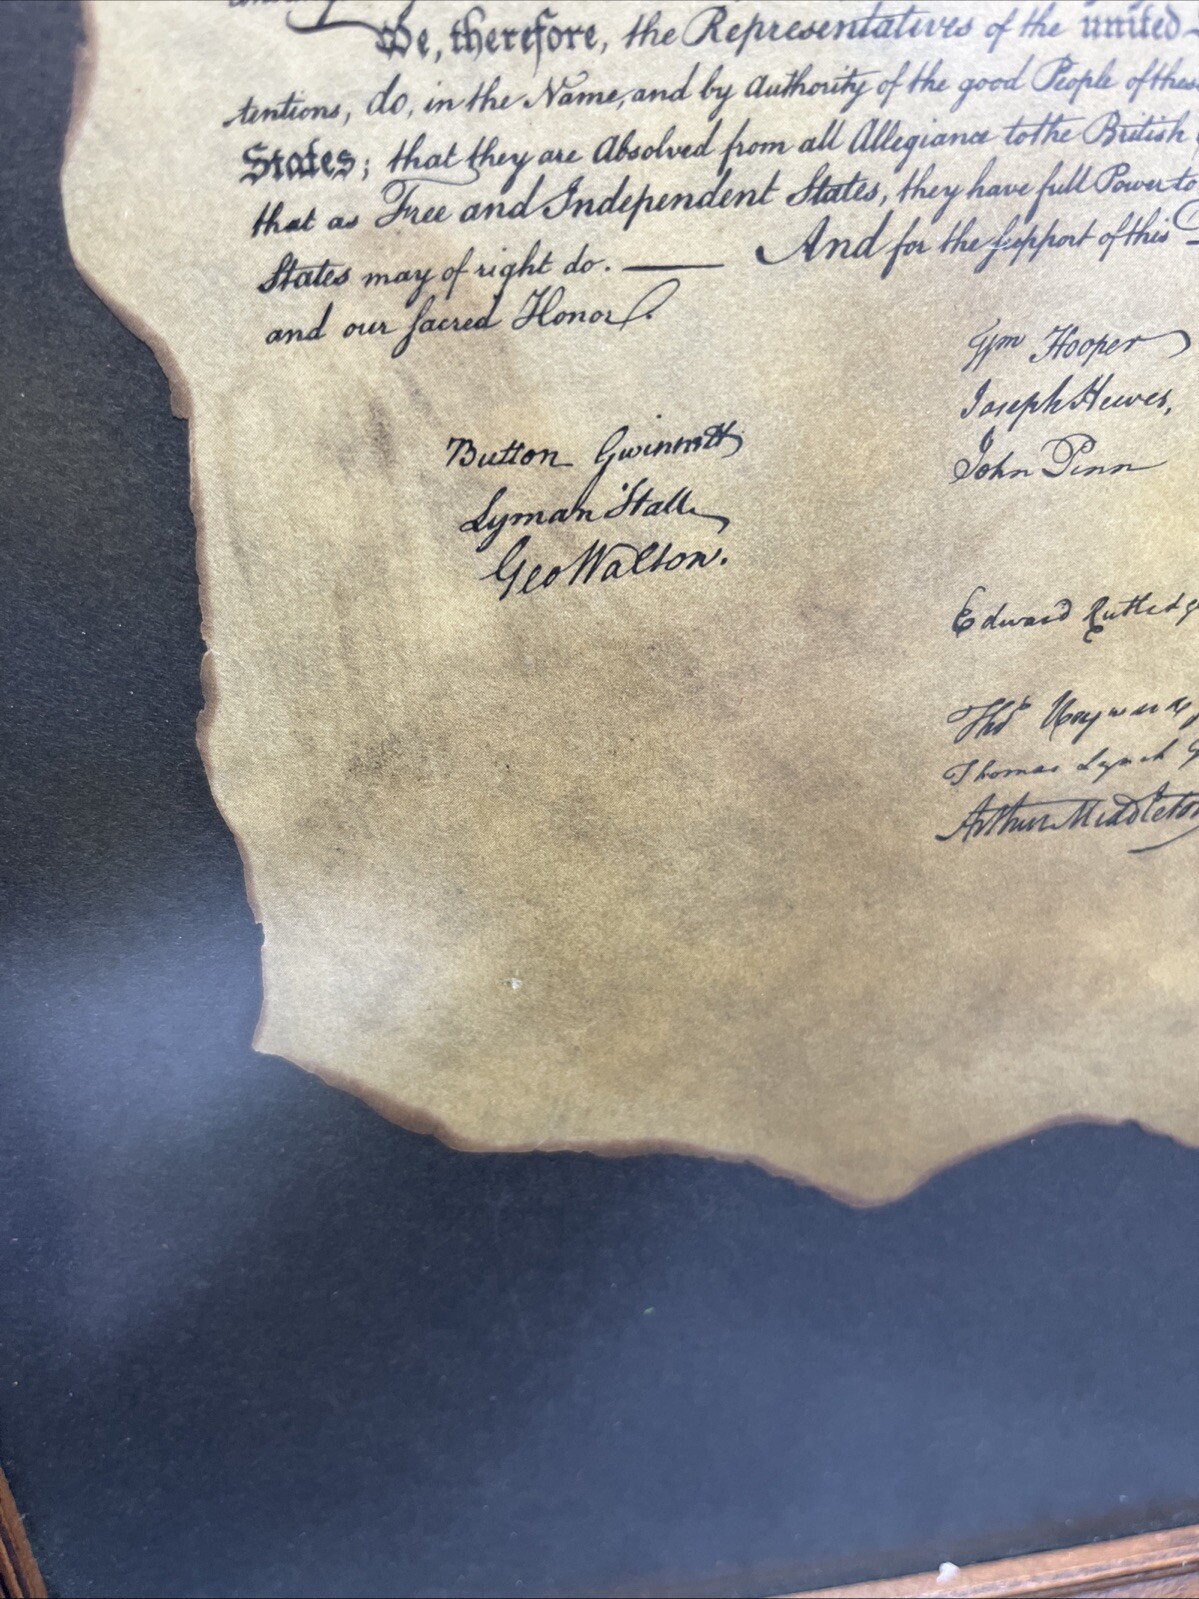 We, therefore, the Representatives of the united
tentions, do, in the Name, and by Authority of the good People of these
States; that they are Absolved from all Allegiance to the British
that as Free and Independent States, they have full Power to
States may of right do. —— And for the support of this
and our sacred Honor.
Wm Hooper
Joseph Hewes,
John Penn
Button Gwinnett
Lyman Hall
Geo Walton.
Edward Rutledge
Thos Heyward
Thomas Lynch
Arthur Middleton